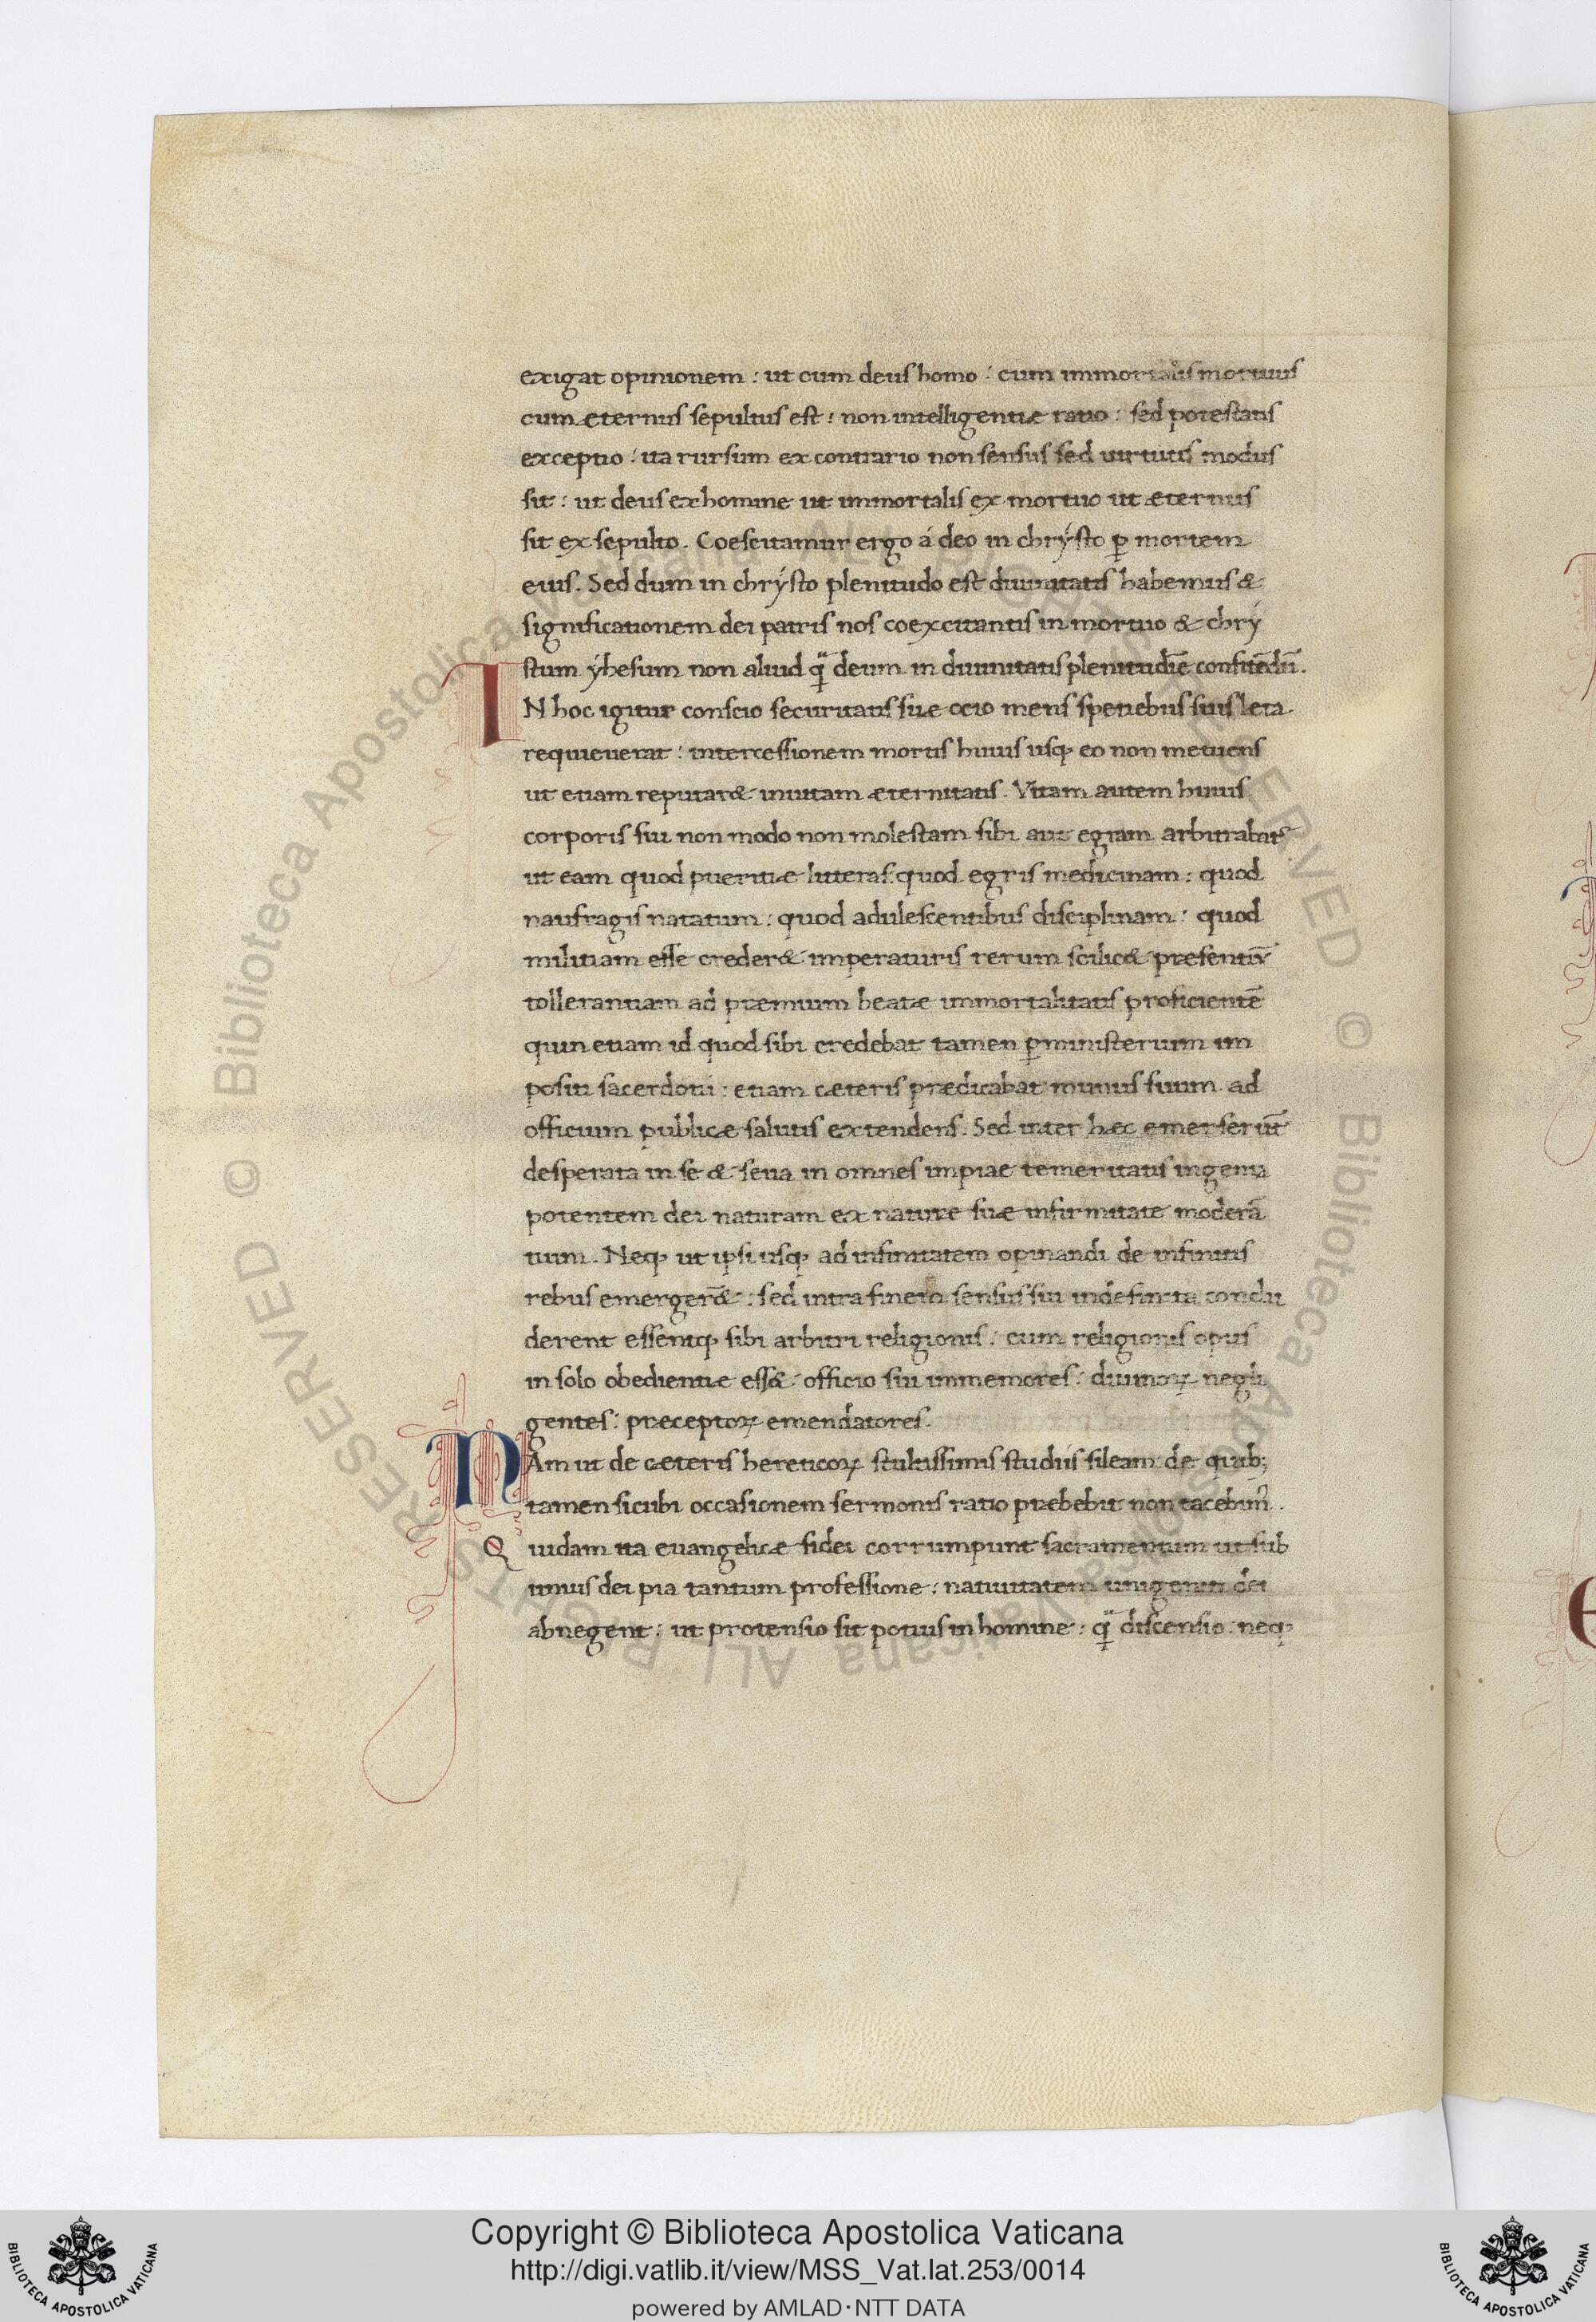 exigat opinionem : ut cum deus homo : cum immortalis mortuus
cum æternus sepultus est : non intelligentiæ ratio : sed potestatis
exceptio : ita rursum ex contrario non sensus sed uirtutis modus
sit : ut deus ex homine ut immortalis ex mortuo ut æternus
sit ex sepulto . Coescitamur ergo á deo in chrýsto ꝑ mortem
eius . Sed dum in chrýsto plenitudo est diuinitatis habemus &
significationem dei patris nos coexcitantis in mortuo & chrý
stum ýhesum non aliud q̈ deum in diuinitatis plenitudīe confitēdū .
IN hoc igitur conscio securitatis suæ ocio mens spetiebus suis leta
requieuerat : intercessionem mortis huius usq; eo non metuens
ut etiam reputar& inuitam æternitatis . Vitam autem huius
corporis sui non modo non molestam sibi aut egram arbitrabat᷑
ut eam quod pueritiæ litteras : quod egris medicinam : quod
naufragis natatum : quod adulescentibus disciplinam : quod
militiam esse creder& imperaturis rerum scilic& presentiū
tollerantiam ad præmium beatæ immortalitatis proficientē
quin etiam id quod sibi credebat tamen ꝑministerium im
positi sacerdotii : etiam cæteris prædicabat munus suum ad
officium publicæ salutis extendens . Sed inter hæc emerserūt
desperata in se & seua in omnes impiae temeritatis ingenia
potentem dei naturam ex nature suæ infirmitate moderā
tium . Neq; ut ipsi usq; ad infinitatem opinandi de infinitis
rebus emergerēt : sed intra finem sensus sui indefinita conclu
derent essentq; sibi arbitri religionis : cum religionis opus
in solo obedientiæ ess& officio sui immemores : diuinoꝝ negli
gentes : preceptoꝝ emendatores .
NAm ut de cæteris hereticoꝝ stultissimis studiis sileam : de quib;
tamen sicubi occasionem sermonis ratio præbebit non tacebimꝰ .
Quidam ita euangelicæ fidei corrumpunt sacramentum ut sub
unius dei pia tantum professione : natiuitatem unigeniti dei
abnegent : ut protensio sit potius in homine : q̈ discensio : neq;
Copyright © Biblioteca Apostolica Vaticana
http://digi.vatlib.it/view/MSS_Vat.lat.253/0014
powered by AMLAD·NTT DATA
BIBLIOTECA APOSTOLICA VATICANA
BIBLIOTECA APOSTOLICA VATICANA